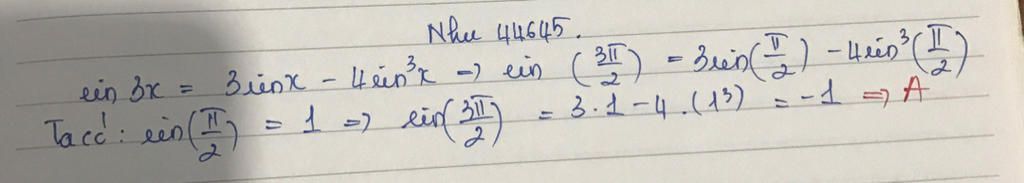 Như 44645.
sin 3x = 3sinx - 4sin³x → sin (3π/2) = 3sin(π/2) - 4sin³(π/2)
Ta có: sin(π/2) = 1 => sin(3π/2) = 3.1 - 4.(1³) = -1 => A